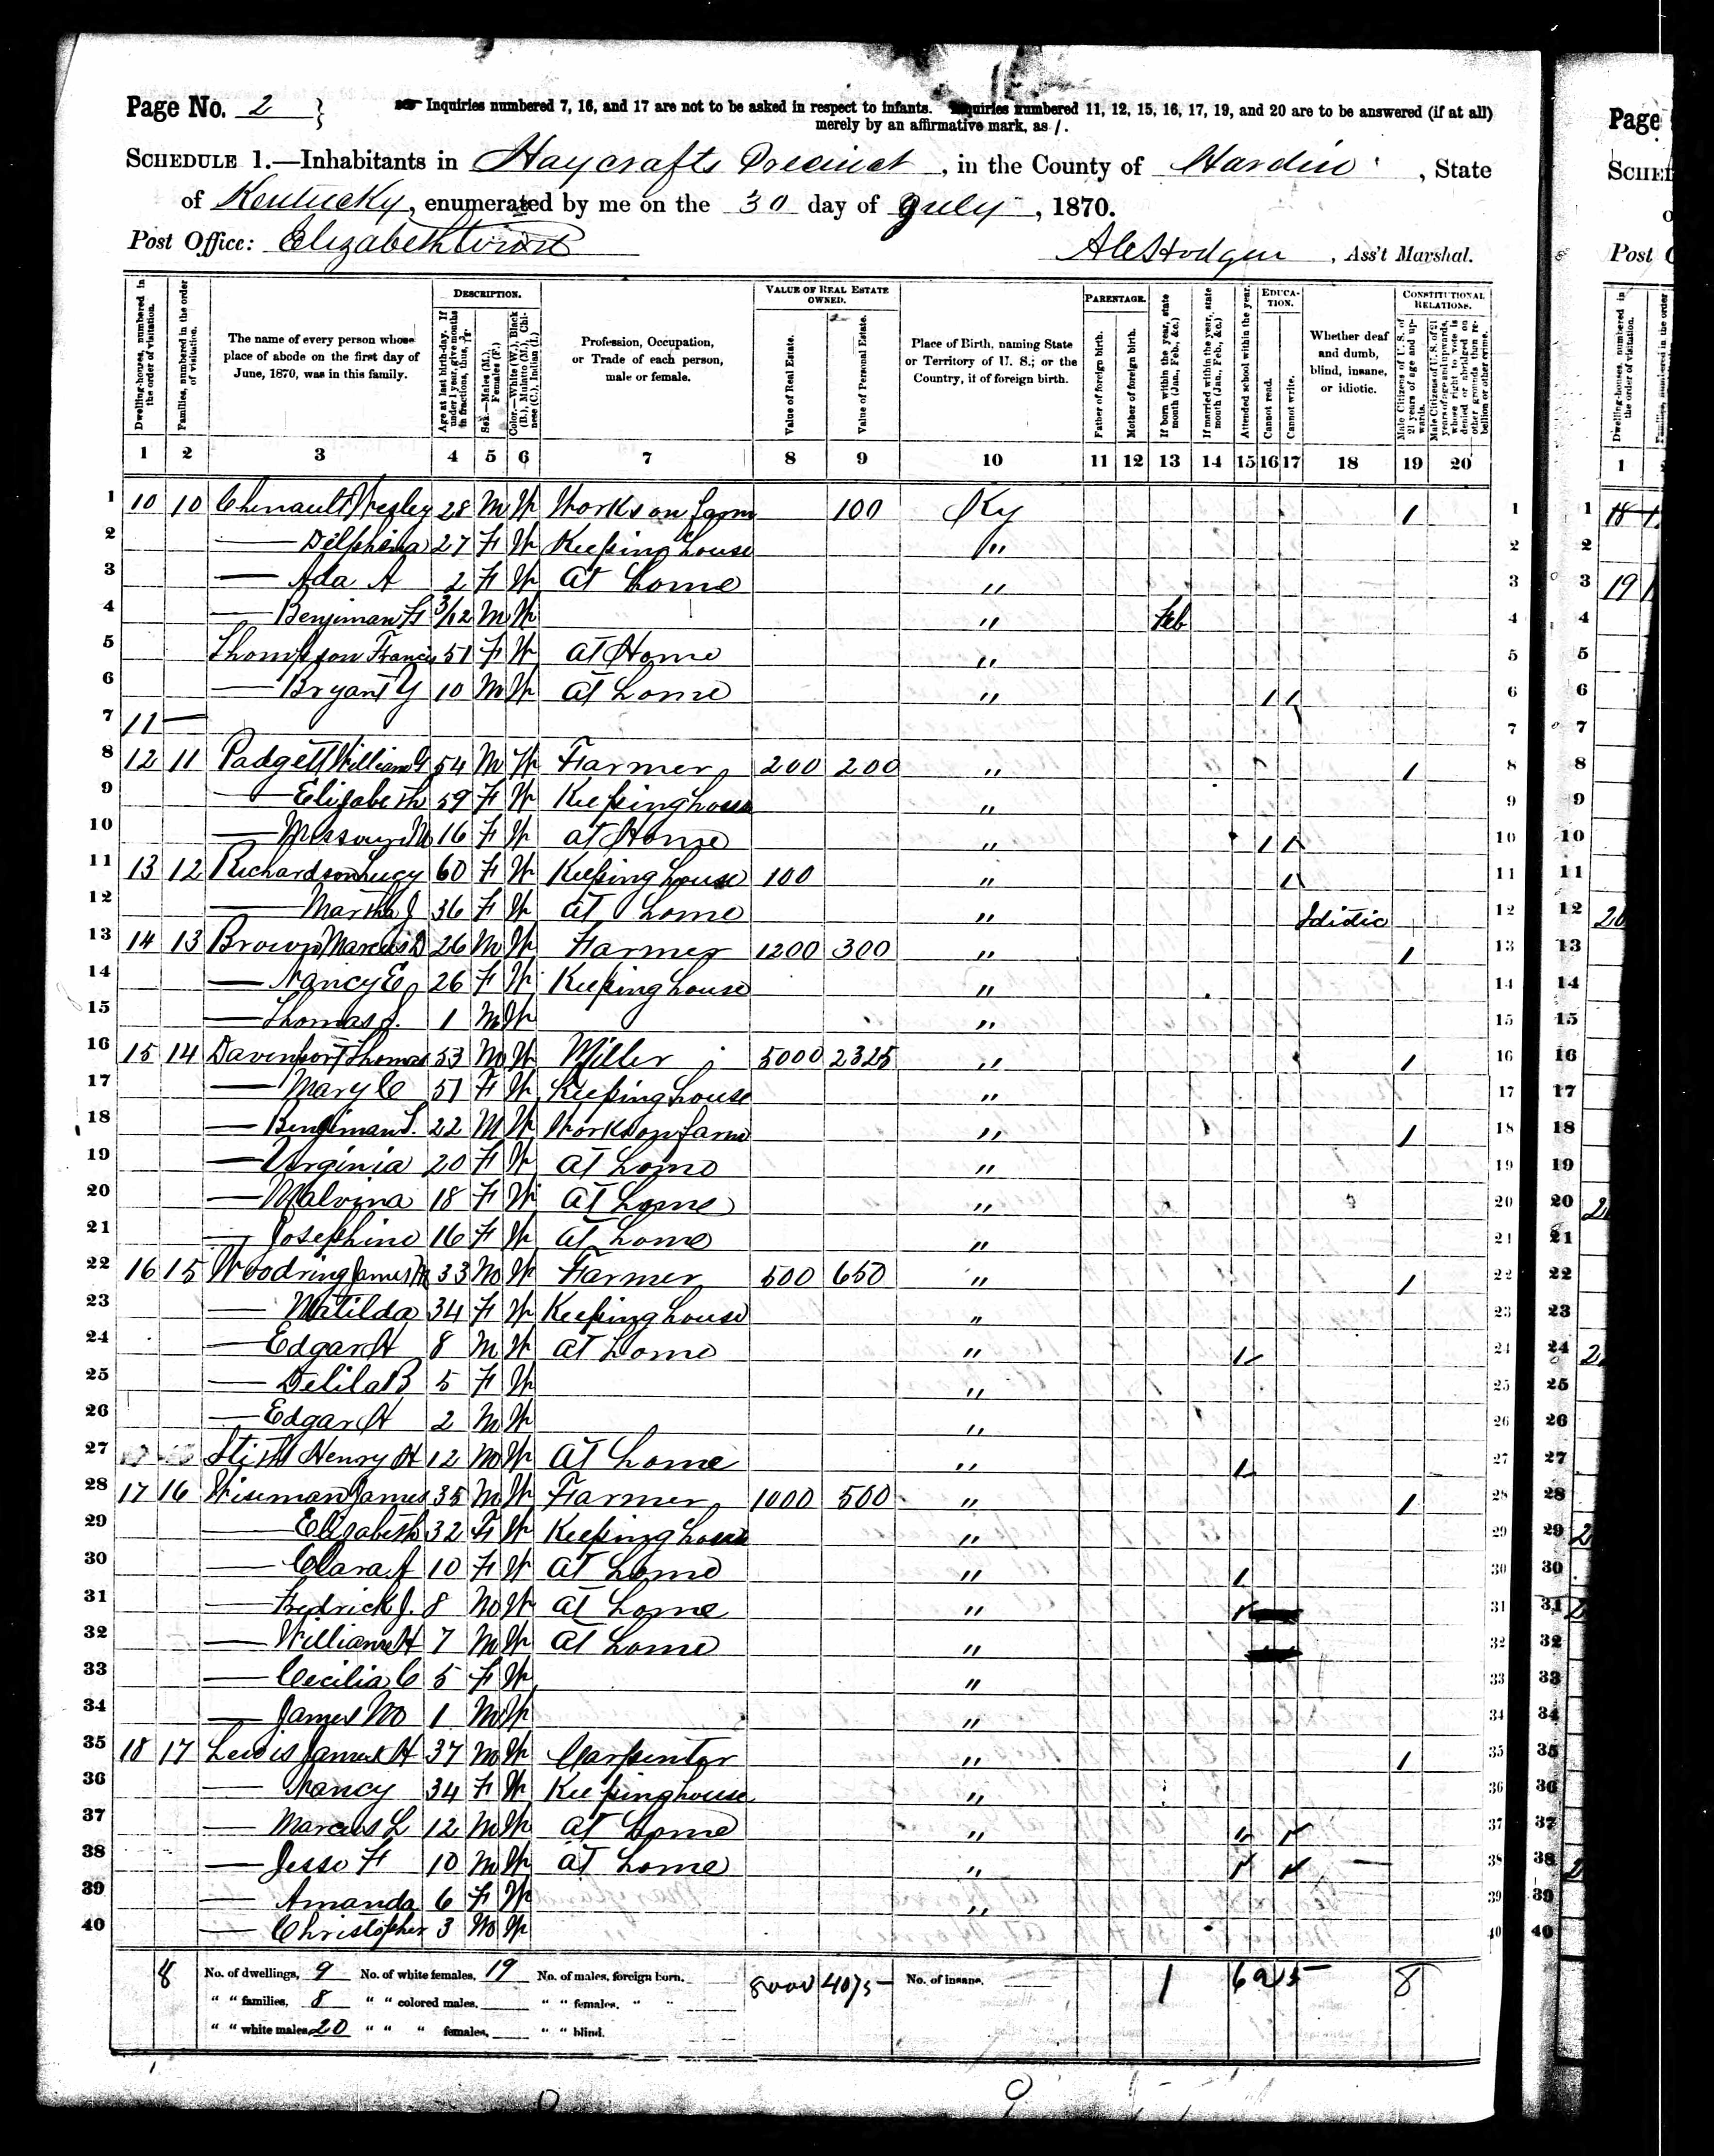 Page No. 2
Inquiries numbered 7, 16, and 17 are not to be asked in respect to infants. Inquiries numbered 11, 12, 15, 16, 17, 19, and 20 are to be answered (if at all)
merely by an affirmative mark, as /.
SCHEDULE 1.—Inhabitants in Haycrafts Precinct, in the County of Hardin, State
of Kentucky, enumerated by me on the 30 day of July, 1870.
Post Office: Elizabethtown
, Ass't Marshal.
Dwelling-houses, numbered in the order of visitation.
Families, numbered in the order of visitation.
The name of every person whose place of abode on the first day of June, 1870, was in this family.
DESCRIPTION.
Age at last birth-day. If under 1 year, give months in fractions, thus, 3/12.
Sex.—Males (M.), Females (F.)
Color.—White (W.), Black (B.), Mulatto (M.), Chinese (C.), Indian (I.)
Profession, Occupation, or Trade of each person, male or female.
VALUE OF REAL ESTATE OWNED.
Value of Real Estate.
Value of Personal Estate.
Place of Birth, naming State or Territory of U. S.; or the Country, if of foreign birth.
PARENTAGE.
Father of foreign birth.
Mother of foreign birth.
If born within the year, state month (Jan., Feb., &c.)
If married within the year, state month (Jan., Feb., &c.)
EDUCATION.
Attended school within the year.
Cannot read.
Cannot write.
Whether deaf and dumb, blind, insane, or idiotic.
CONSTITUTIONAL RELATIONS.
Male Citizens of U. S. of 21 years of age and upwards.
Male Citizens of U. S. of 21 years of age and upwards, whose right to vote is denied or abridged on other grounds than rebellion or other crime.
1 2 3 4 5 6 7 8 9 10 11 12 13 14 15 16 17 18 19 20
1 10 10 Chenault Wesley 28 M W Works on farm 100 Ky / 1
2 — Delphina 27 F W Keeping house " 2
3 — Ada A 2 F W at home " 3
4 — Benjiman F 3/12 M W " Feb 4
5 Thompson Francis 51 F W at Home " 5
6 — Bryant Y 10 M W at home " / / 6
7 11 — 7
8 12 11 Padgett William G 54 M W Farmer 200 200 " / 8
9 — Elizabeth 59 F W Keeping house " 9
10 — Missouri M 16 F W at Home " / / 10
11 13 12 Richardson Lucy 60 F W Keeping house 100 " / 11
12 — Martha J 36 F W at home " Idiotic 12
13 14 13 Brown Marcus D 26 M W Farmer 1200 300 " / 13
14 — Nancy E 26 F W Keeping house " 14
15 — Thomas J. 1 M W " 15
16 15 14 Davenport Thomas 53 M W Miller 5000 2325 " / 16
17 — Mary C 51 F W Keeping house " 17
18 — Benjiman T. 22 M W Works on farm " / 18
19 — Virginia 20 F W at home " 19
20 — Malvina 18 F W at home " 20
21 — Josephine 16 F W at home " 21
22 16 15 Woodring James M 33 M W Farmer 500 650 " / 22
23 — Matilda 34 F W Keeping house " 23
24 — Edgar H 8 M W at home " / 24
25 — Delila B 5 F W " 25
26 — Edgar H 2 M W " 26
27 Stith Henry H 12 M W at home " / 27
28 17 16 Wiseman James 35 M W Farmer 1000 500 " / 28
29 — Elizabeth 32 F W Keeping house " 29
30 — Clara A 10 F W at home " / 30
31 — Fredrick J. 8 M W at home " / 31
32 — William H 7 M W at home " 32
33 — Cecilia C 5 F W " 33
34 — James M 1 M W " 34
35 18 17 Lewis James H 37 M W Carpenter " / 35
36 — Nancy 34 F W Keeping house " 36
37 — Marcus L 12 M W at home " / / 37
38 — Jesse F 10 M W at home " / / 38
39 — Amanda 6 F W " 39
40 — Christopher 3 M W 40
8 No. of dwellings, 9 No. of white females, 19 No. of males, foreign born. 8000 4075 No. of insane, 1 6 8
" " families, 8 " " colored males, " " females, " "
" " white males, 20 " " " females, " " blind.
Page
Post
18
19